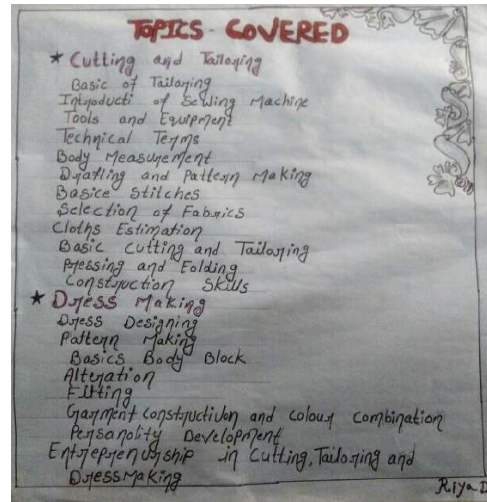 TOPICS - COVERED
★ Cutting and Tailoring
Basic of Tailoring
Introducti of Sewing Machine
Tools and Equipment
Technical Terms
Body Measurement
Drafting and Pattern Making
Basice Stitches
Selection of Fabrics
Cloths Estimation
Basic Cutting and Tailoring
Pressing and Folding
Construction Skills
★ Dress Making
Dress Designing
Pattern Making
Basics Body Block
Alteration
Fitting
Garment construction and colour combination
Personality Development
Entrepreneurship in Cutting, Tailoring and
Dress Making
Riya D